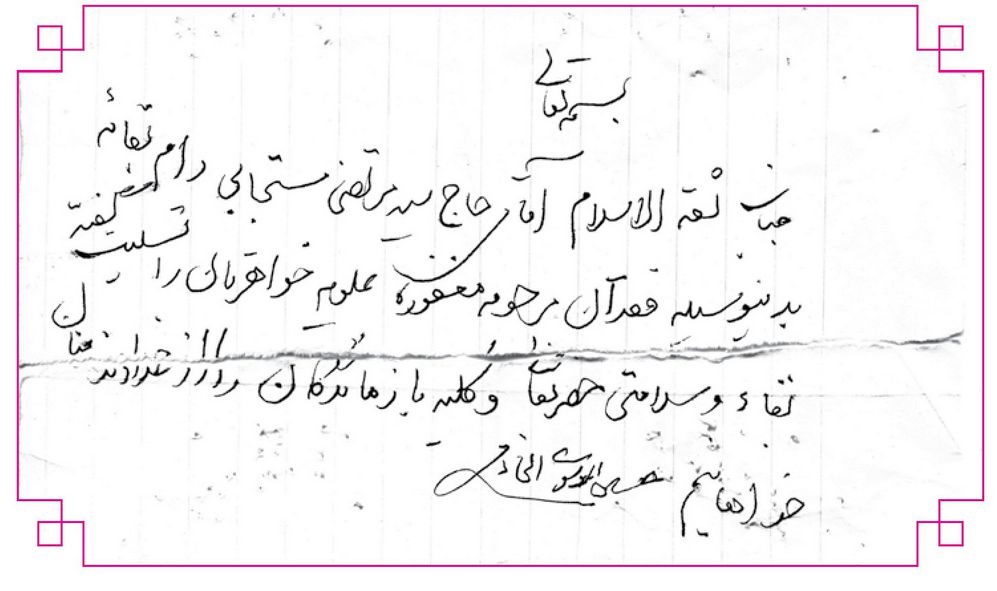 بسمه تعالی
جناب ثقة الاسلام آقای حاج سید مرتضی مستجابی دام بقائه
بدینوسیله فقدان مرحومه مغفوره علویه خواهرتان را تسلیت گفته
بقاء و سلامتی حضرتعالی و کلیه بازماندگان را از خداوند منان
خواهانیم